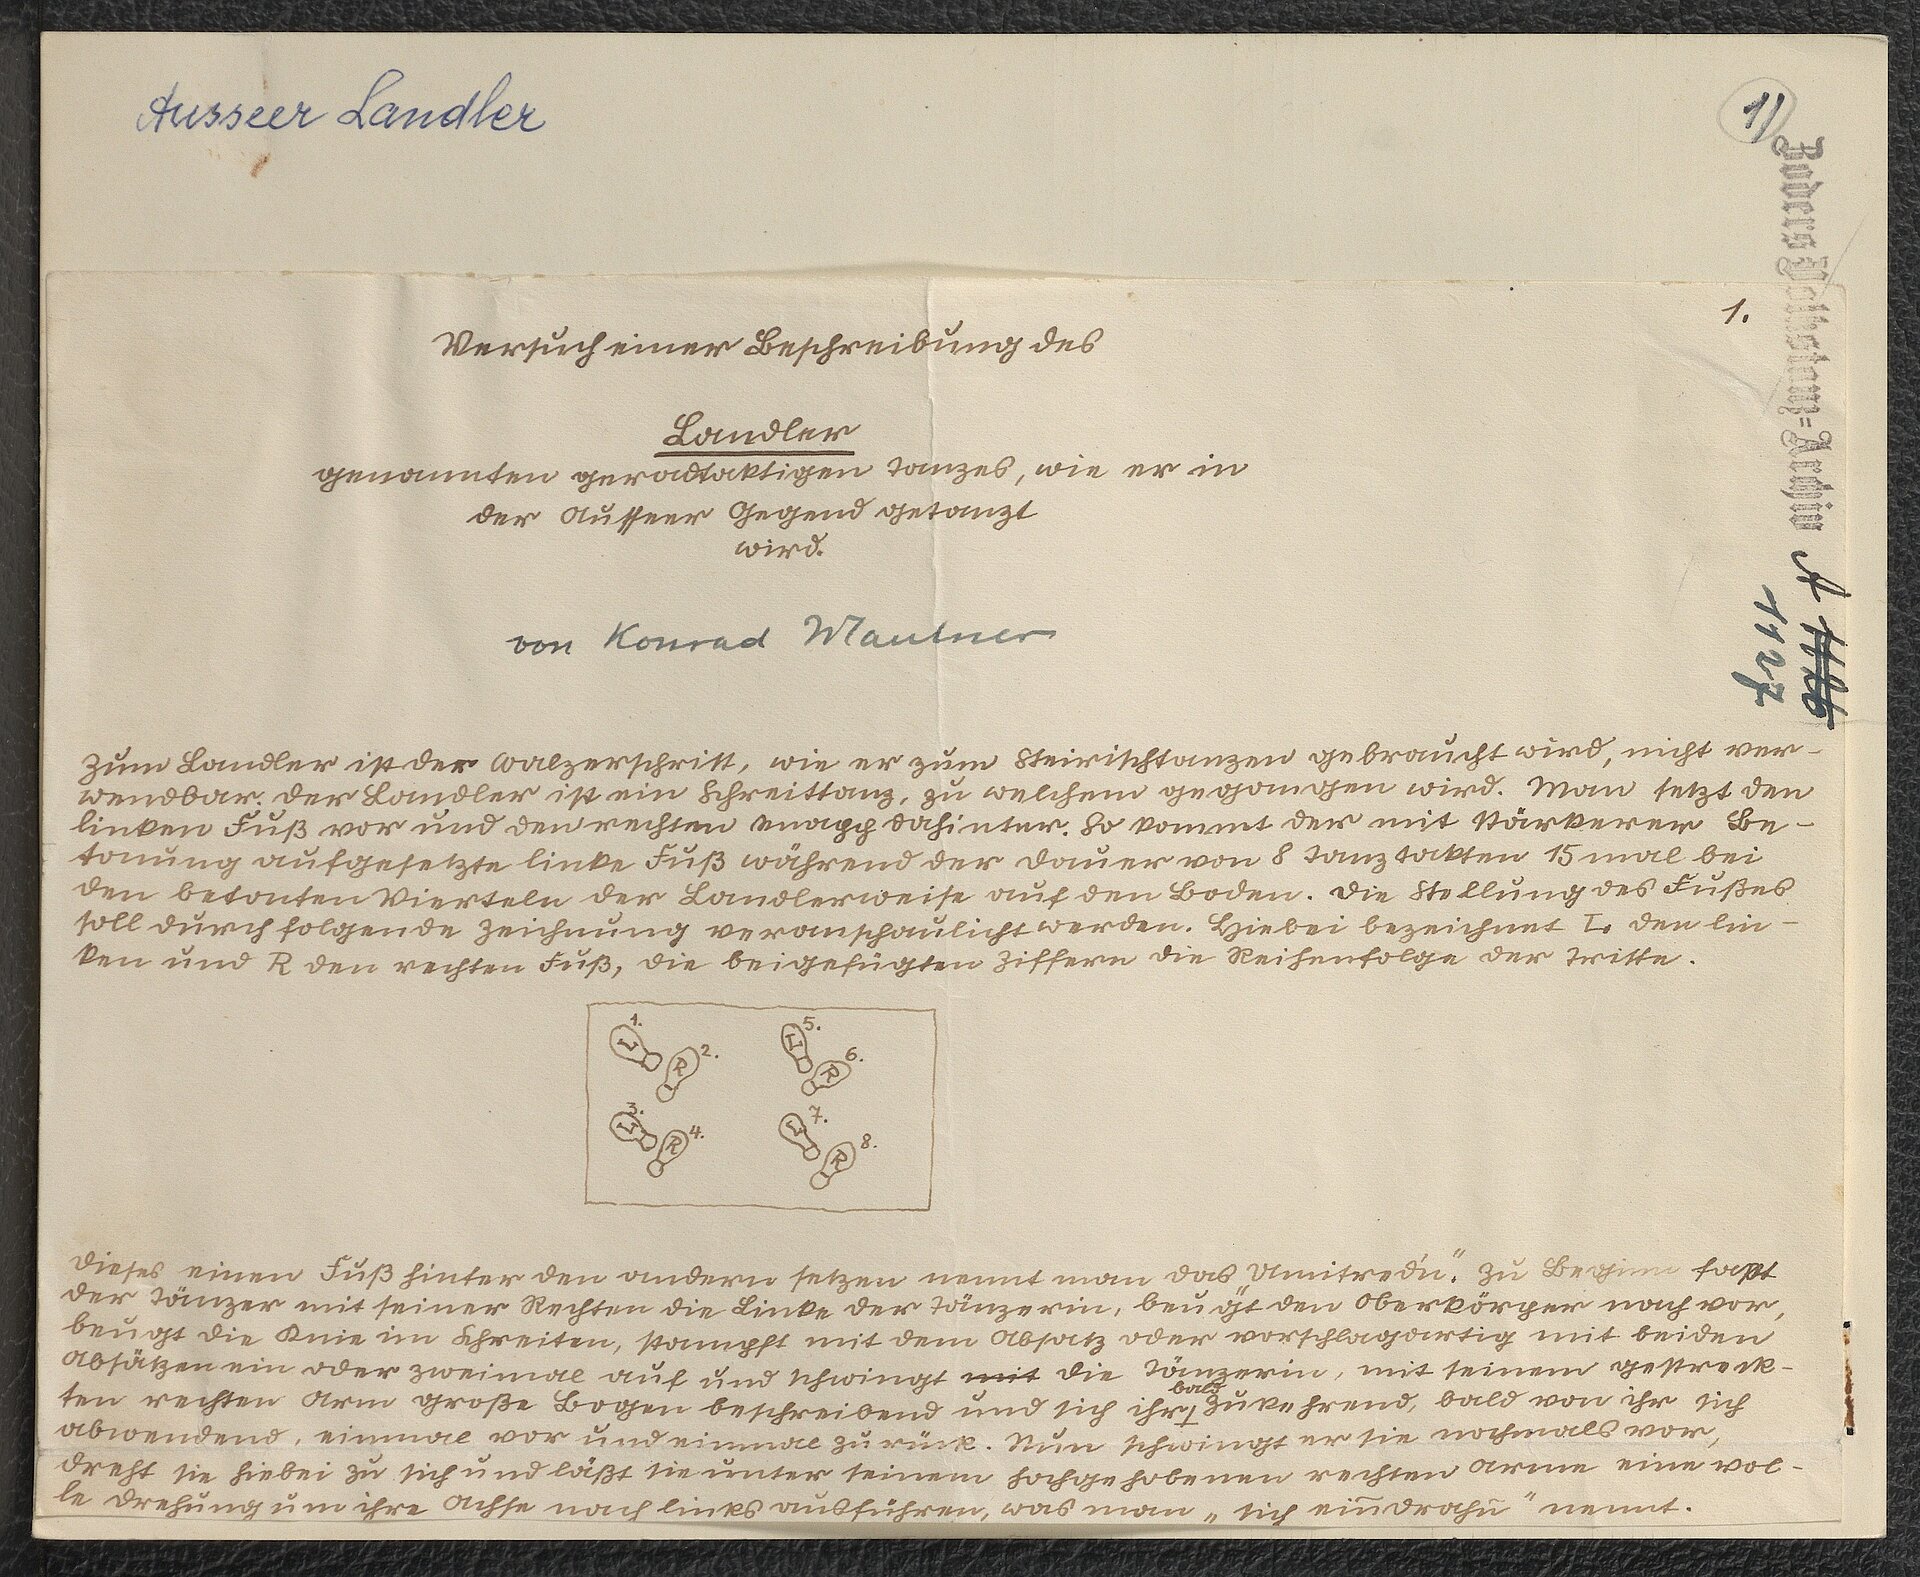 Ausseer Landler
1)
Zoders Volkstanz=Archiv A
1127
1.
Versuch einer Beschreibung des
Landler
genannten geradtaktigen Tanzes, wie er in
der Ausseer Gegend getanzt
wird.
von Konrad Mautner
Zum Landler ist der Walzerschritt, wie er zum Steirischtanzen gebraucht wird, nicht ver-
wendbar. Der Landler ist ein Schreittanz, zu welchem gegangen wird. Man setzt den
linken Fuß vor und den rechten knapp dahinter. So kommt der mit stärkerer Be-
tonung aufgesetzte linke Fuß während der Dauer von 8 Tanztakten 15 mal bei
den betonten Vierteln der Landlerweise auf den Boden. Die Stellung des Fußes
soll durch folgende Zeichnung veranschaulicht werden. Hiebei bezeichnet L. den lin-
ken und R den rechten Fuß, die beigefügten Ziffern die Reihenfolge der Tritte.
1. L R 2. 5. L R 6.
3. L R 4. 7. L R 8.
Dieses einen Fuß hinter den andern setzen nennt man das „Umitredn̄". Zu Beginn faßt
der Tänzer mit seiner Rechten die Linke der Tänzerin, beugt den Oberkörper nach vor,
beugt die Knie im Schreiten, stampft mit dem Absatz oder vorschlagartig mit beiden
Absätzen ein oder zweimal auf und schwingt mit die Tänzerin, mit seinem gestreck-
ten rechten Arm große Bogen beschreibend und sich ihr, bald zukehrend, bald von ihr sich
abwendend, einmal vor und einmal zurück. Nun schwingt er sie nochmals vor,
dreht sie hiebei zu sich und läßt sie unter seinem hochgehobenen rechten Arme eine vol-
le Drehung um ihre Achse nach links ausführen, was man „sich ein̄drahn̄" nennt.